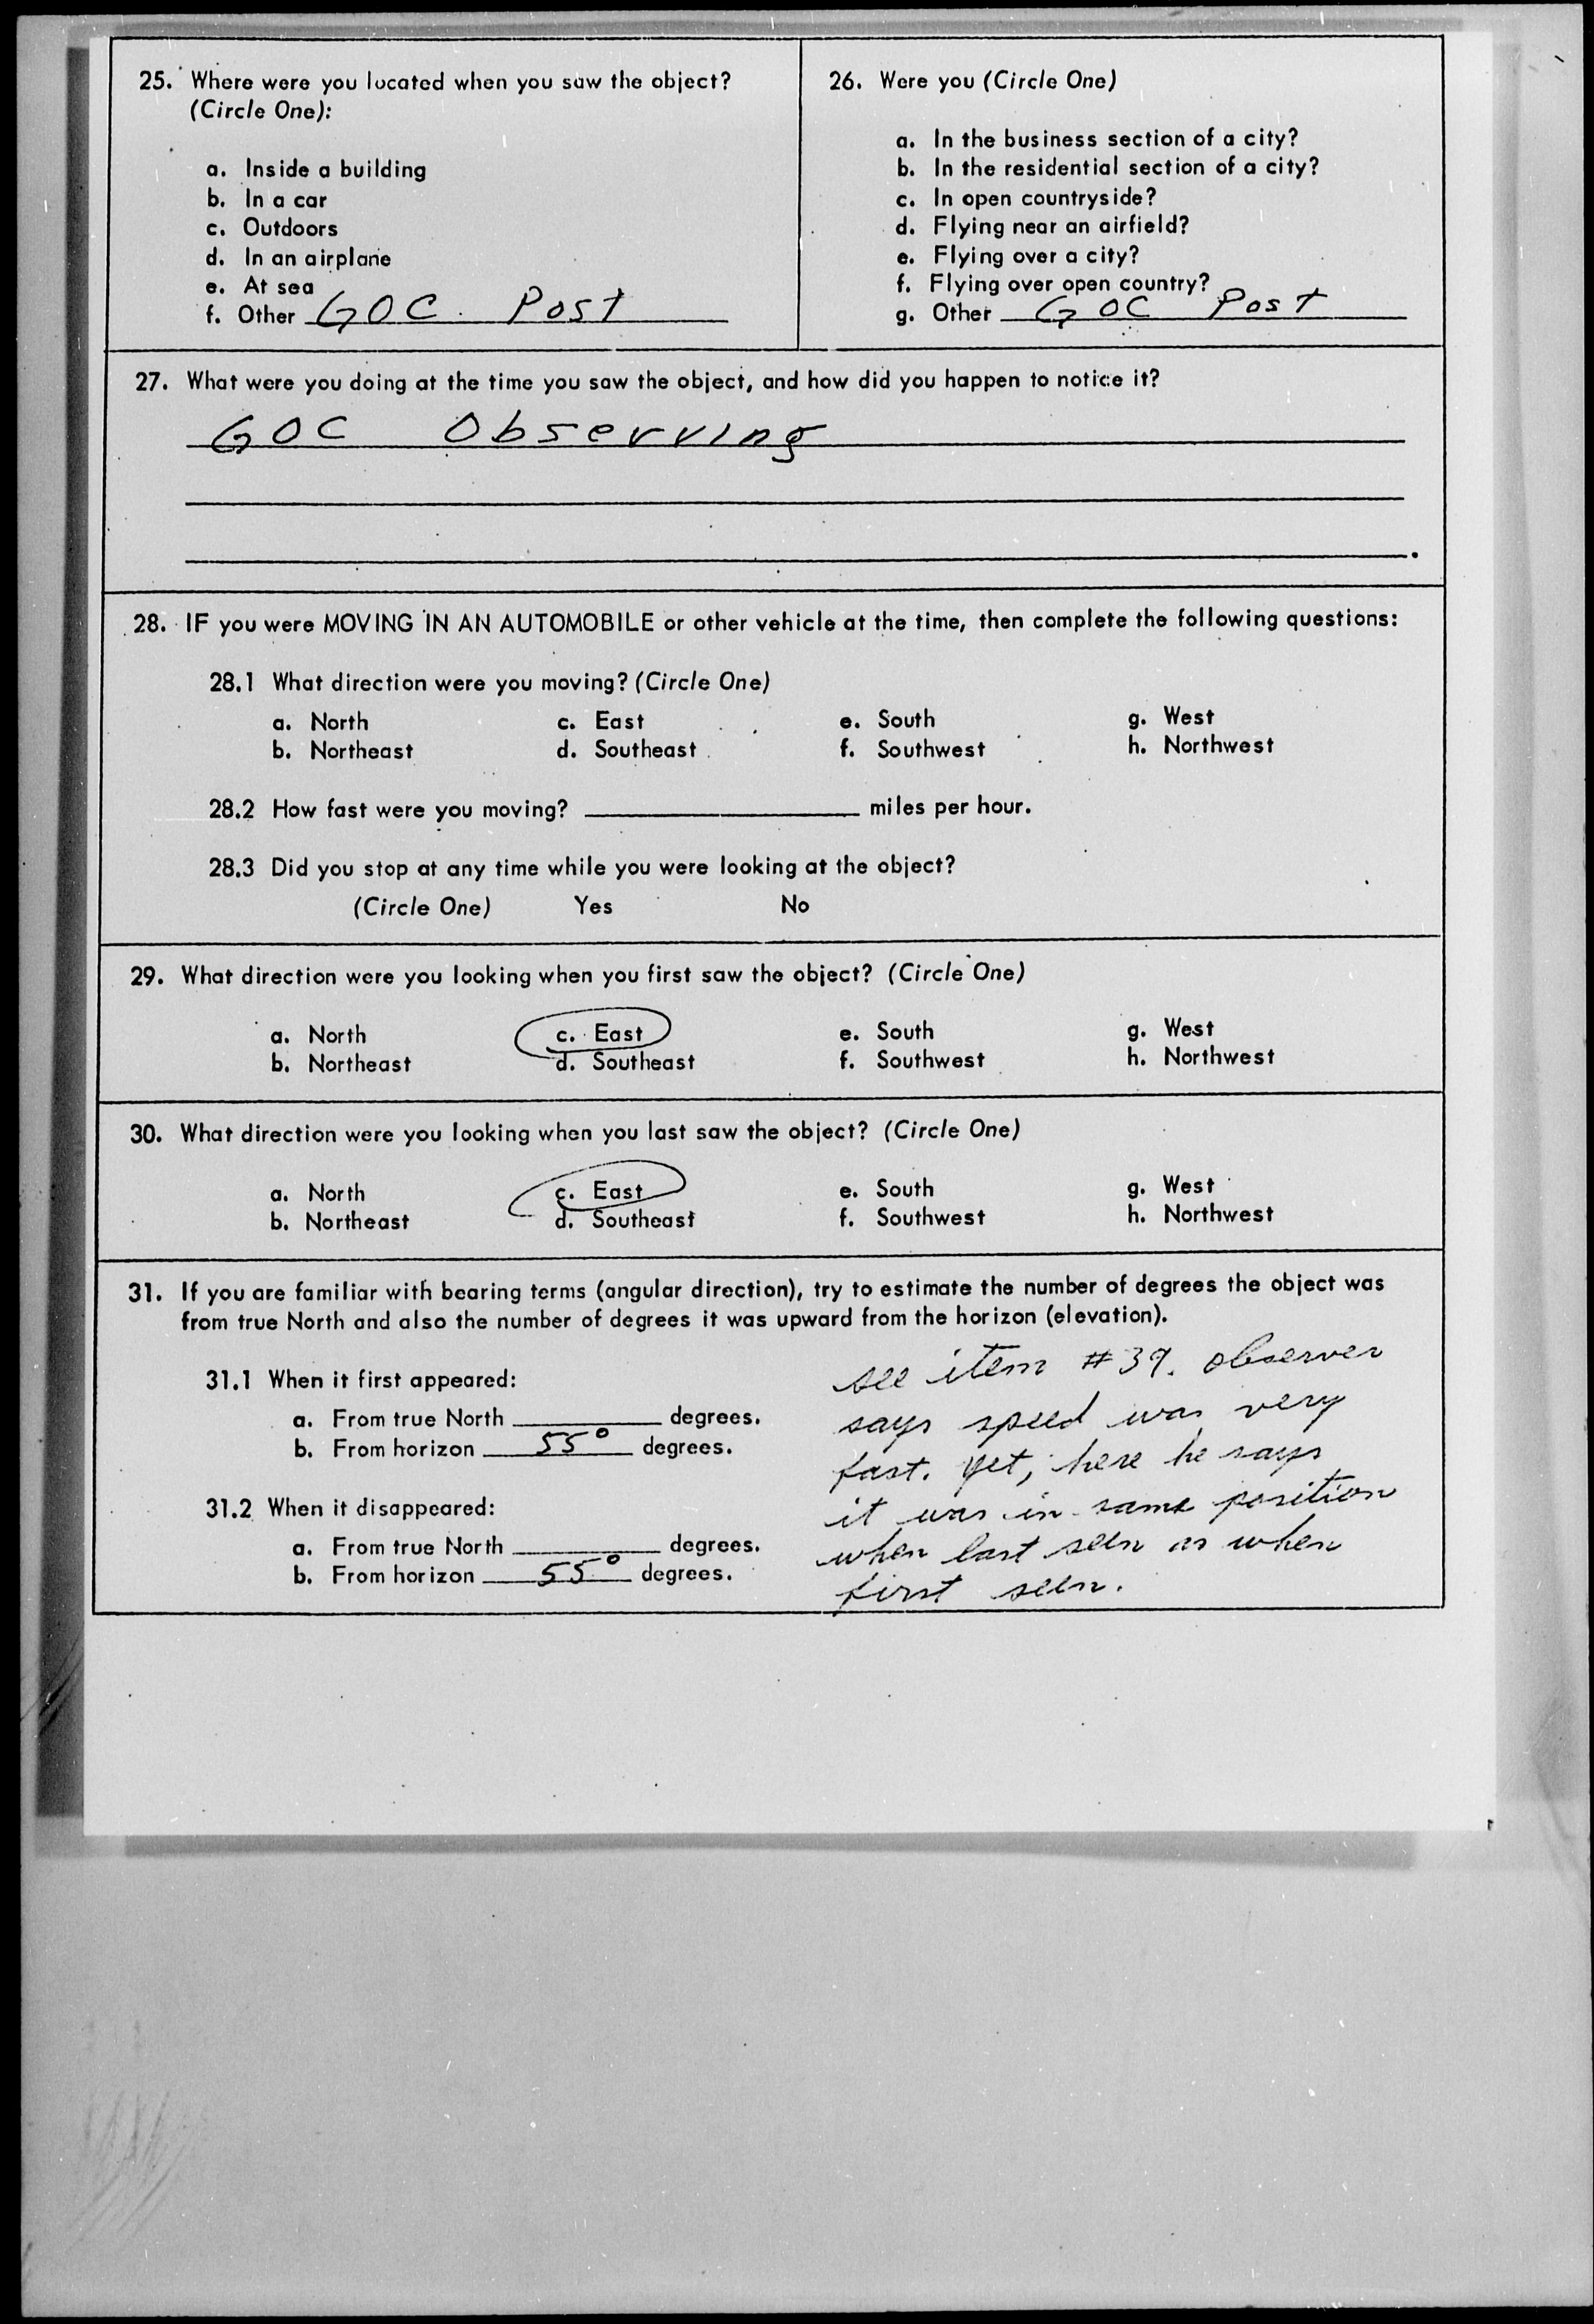 25. Where were you located when you saw the object?
(Circle One):
a. Inside a building
b. In a car
c. Outdoors
d. In an airplane
e. At sea
f. Other GOC Post
26. Were you (Circle One)
a. In the business section of a city?
b. In the residential section of a city?
c. In open countryside?
d. Flying near an airfield?
e. Flying over a city?
f. Flying over open country?
g. Other GOC Post
27. What were you doing at the time you saw the object, and how did you happen to notice it?
GOC Observing
28. IF you were MOVING IN AN AUTOMOBILE or other vehicle at the time, then complete the following questions:
28.1 What direction were you moving? (Circle One)
a. North c. East e. South g. West
b. Northeast d. Southeast f. Southwest h. Northwest
28.2 How fast were you moving? miles per hour.
28.3 Did you stop at any time while you were looking at the object?
(Circle One) Yes No
29. What direction were you looking when you first saw the object? (Circle One)
a. North c. East e. South g. West
b. Northeast d. Southeast f. Southwest h. Northwest
30. What direction were you looking when you last saw the object? (Circle One)
a. North c. East e. South g. West
b. Northeast d. Southeast f. Southwest h. Northwest
31. If you are familiar with bearing terms (angular direction), try to estimate the number of degrees the object was
from true North and also the number of degrees it was upward from the horizon (elevation).
31.1 When it first appeared:
a. From true North degrees.
b. From horizon 55° degrees.
31.2 When it disappeared:
a. From true North degrees.
b. From horizon 55° degrees.
see item #39. observer
says speed was very
fast. yet, here he says
it was in same position
when last seen as when
first seen.